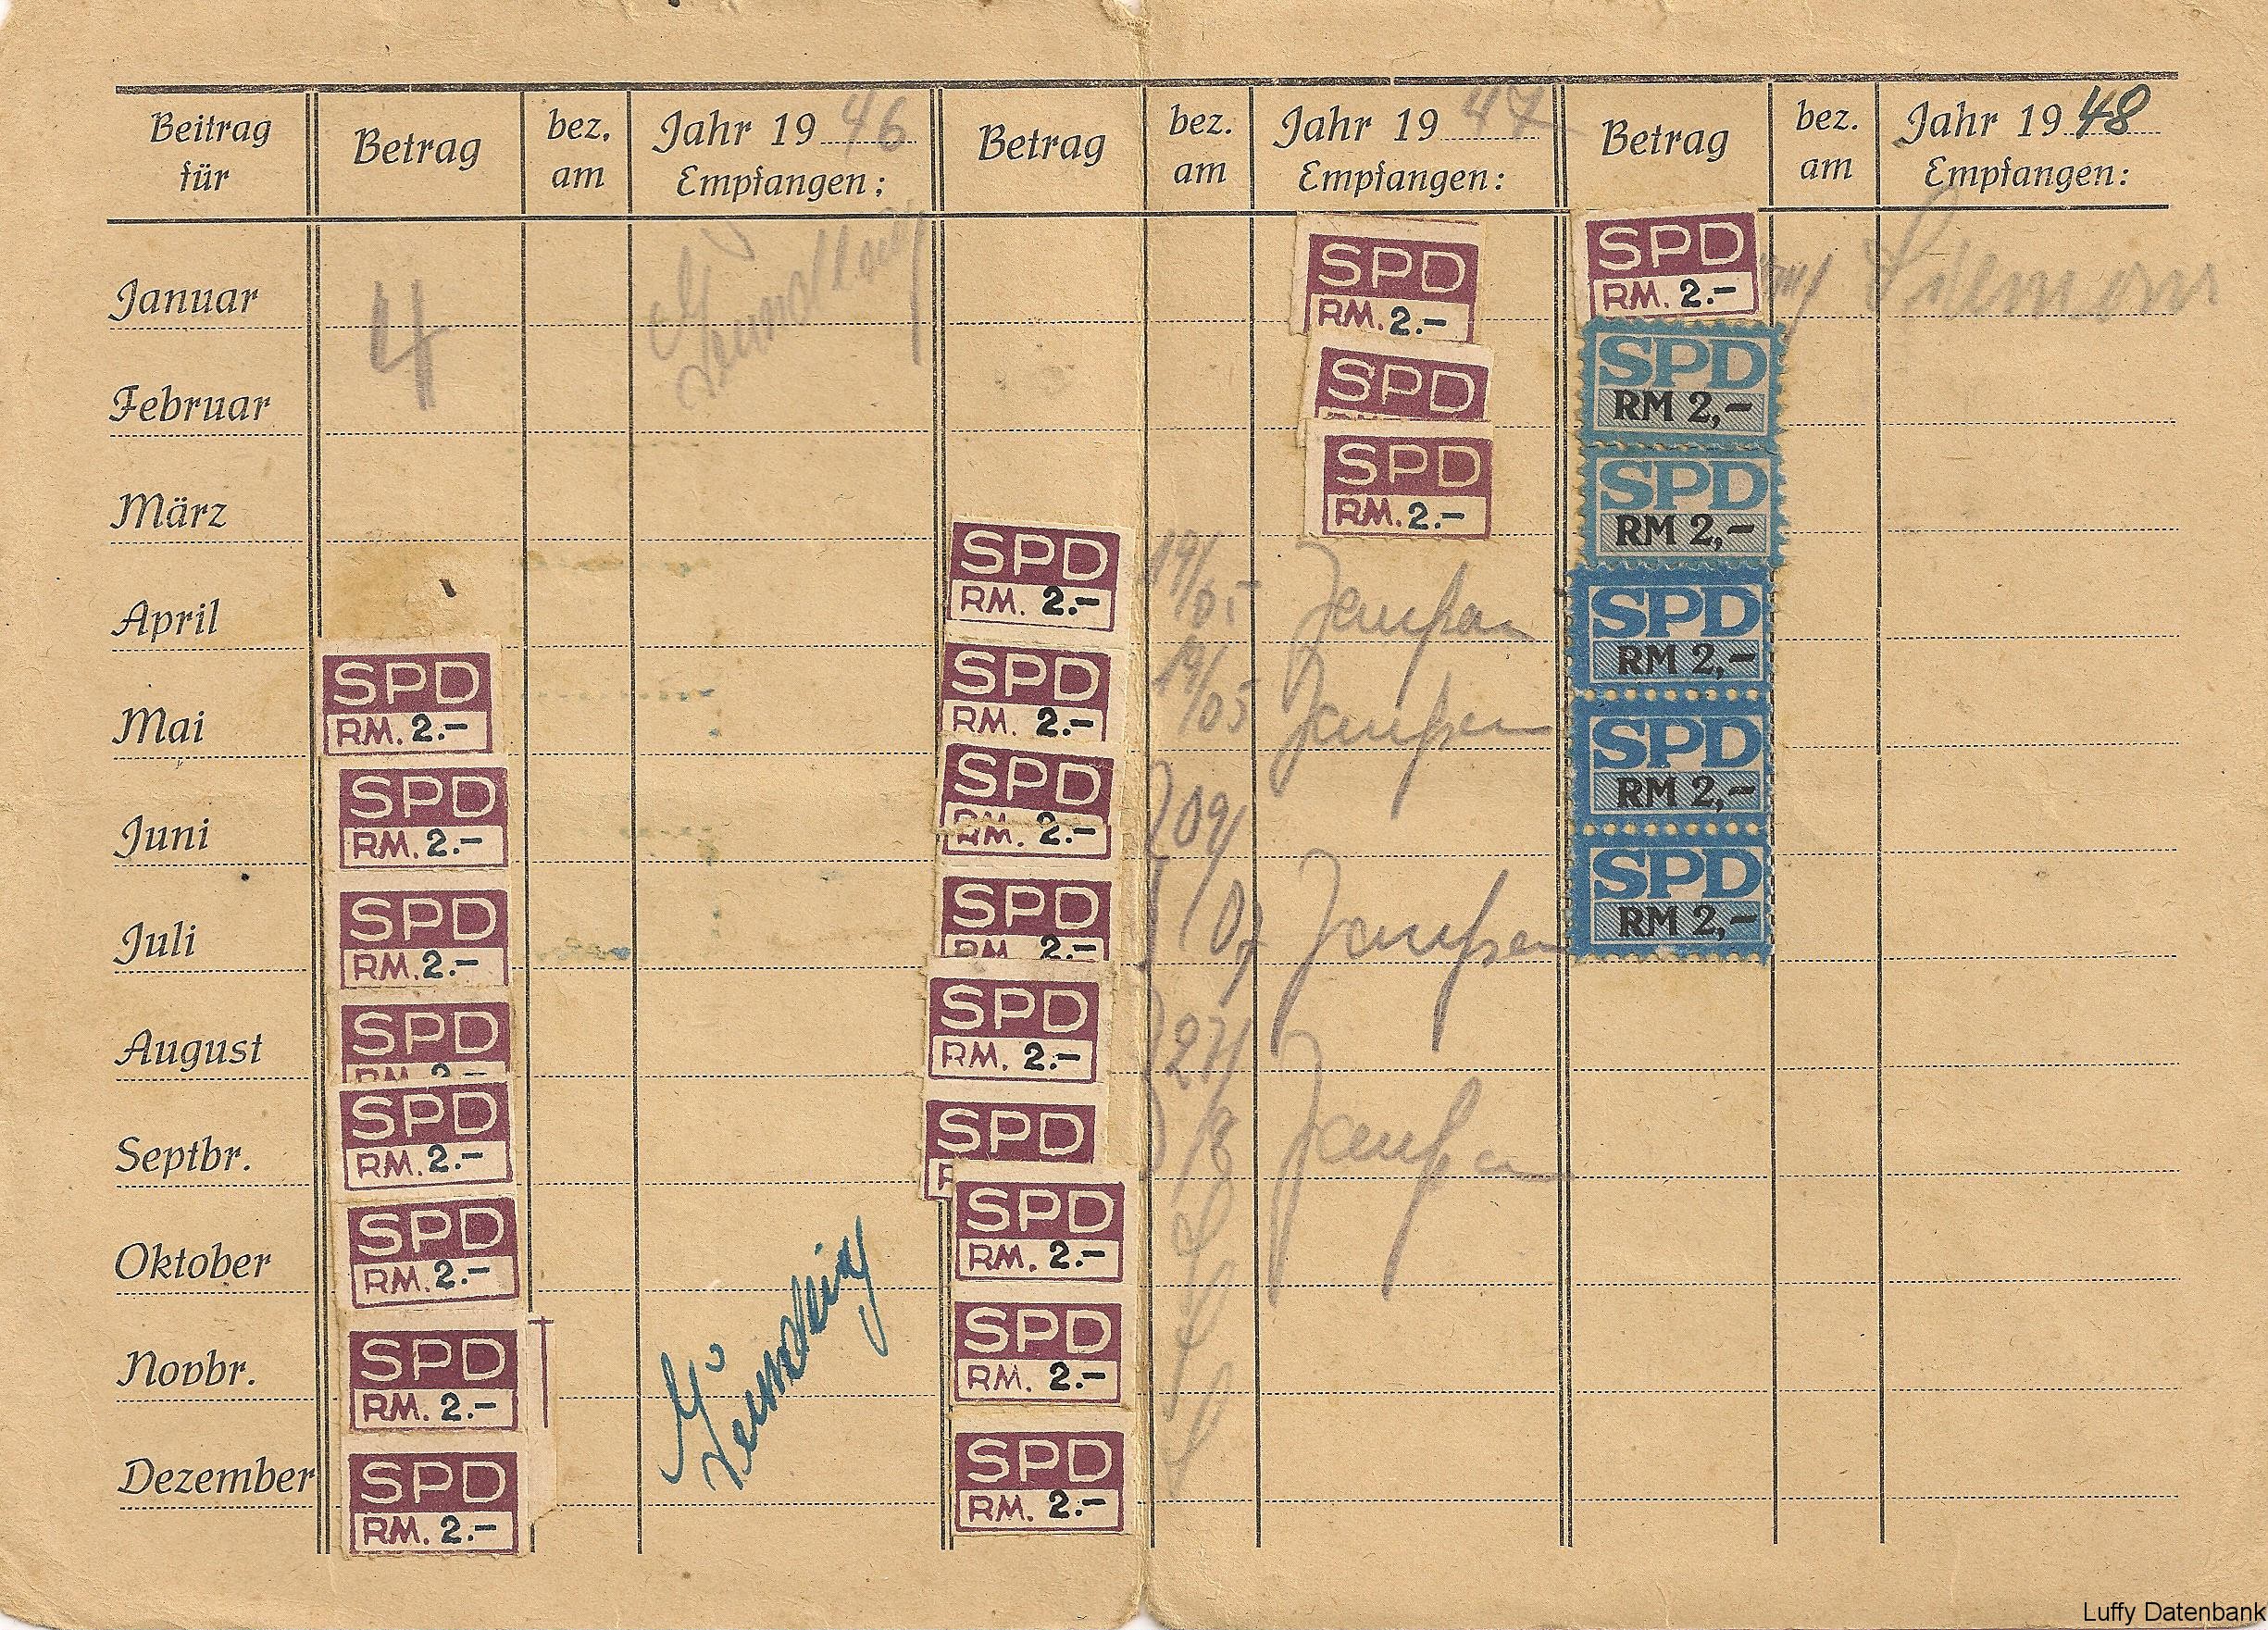 Beitrag für Betrag bez. am Jahr 19 46 Empfangen: Betrag bez. am Jahr 19 47 Empfangen: Betrag bez. am Jahr 19 48 Empfangen:
Januar 4 SPD RM. 2.- SPD RM. 2.-
Februar SPD SPD RM 2,-
März SPD RM. 2.- SPD RM 2,-
April SPD RM. 2.- 19/05 Janßen SPD RM 2,-
Mai SPD RM. 2.- SPD RM. 2.- 19/05 Janßen SPD RM 2,-
Juni SPD RM. 2.- SPD RM. 2.- 09/07 SPD RM 2,-
Juli SPD RM. 2.- SPD RM 2.- Janßen
August SPD RM 2.- SPD RM. 2.- 27/8
Septbr. SPD RM. 2.- SPD Janßen
Oktober SPD RM. 2.- SPD RM. 2.-
Novbr. SPD RM. 2.- SPD RM. 2.-
Dezember SPD RM. 2.- SPD RM. 2.-
Luffy Datenbank